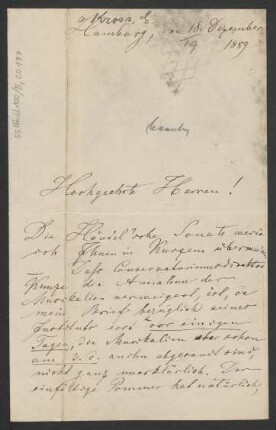 Hamburg, den 18. Dezember
19 1889
Hochgeehrte Herren!
Die Händel'sche Sonate werde
ich Ihnen in Kurzem übermit
Dass Conservatoriumsdirektor
die Annahme der
Musikalien verweigert, ist, da
mein Brief bezüglich seiner
erst vor einigen
Tagen, die Musikalien aber schon
am 3. d. abgesandt sind
nicht ganz unerklärlich. Der
einfältige Pommer hat natürlich,